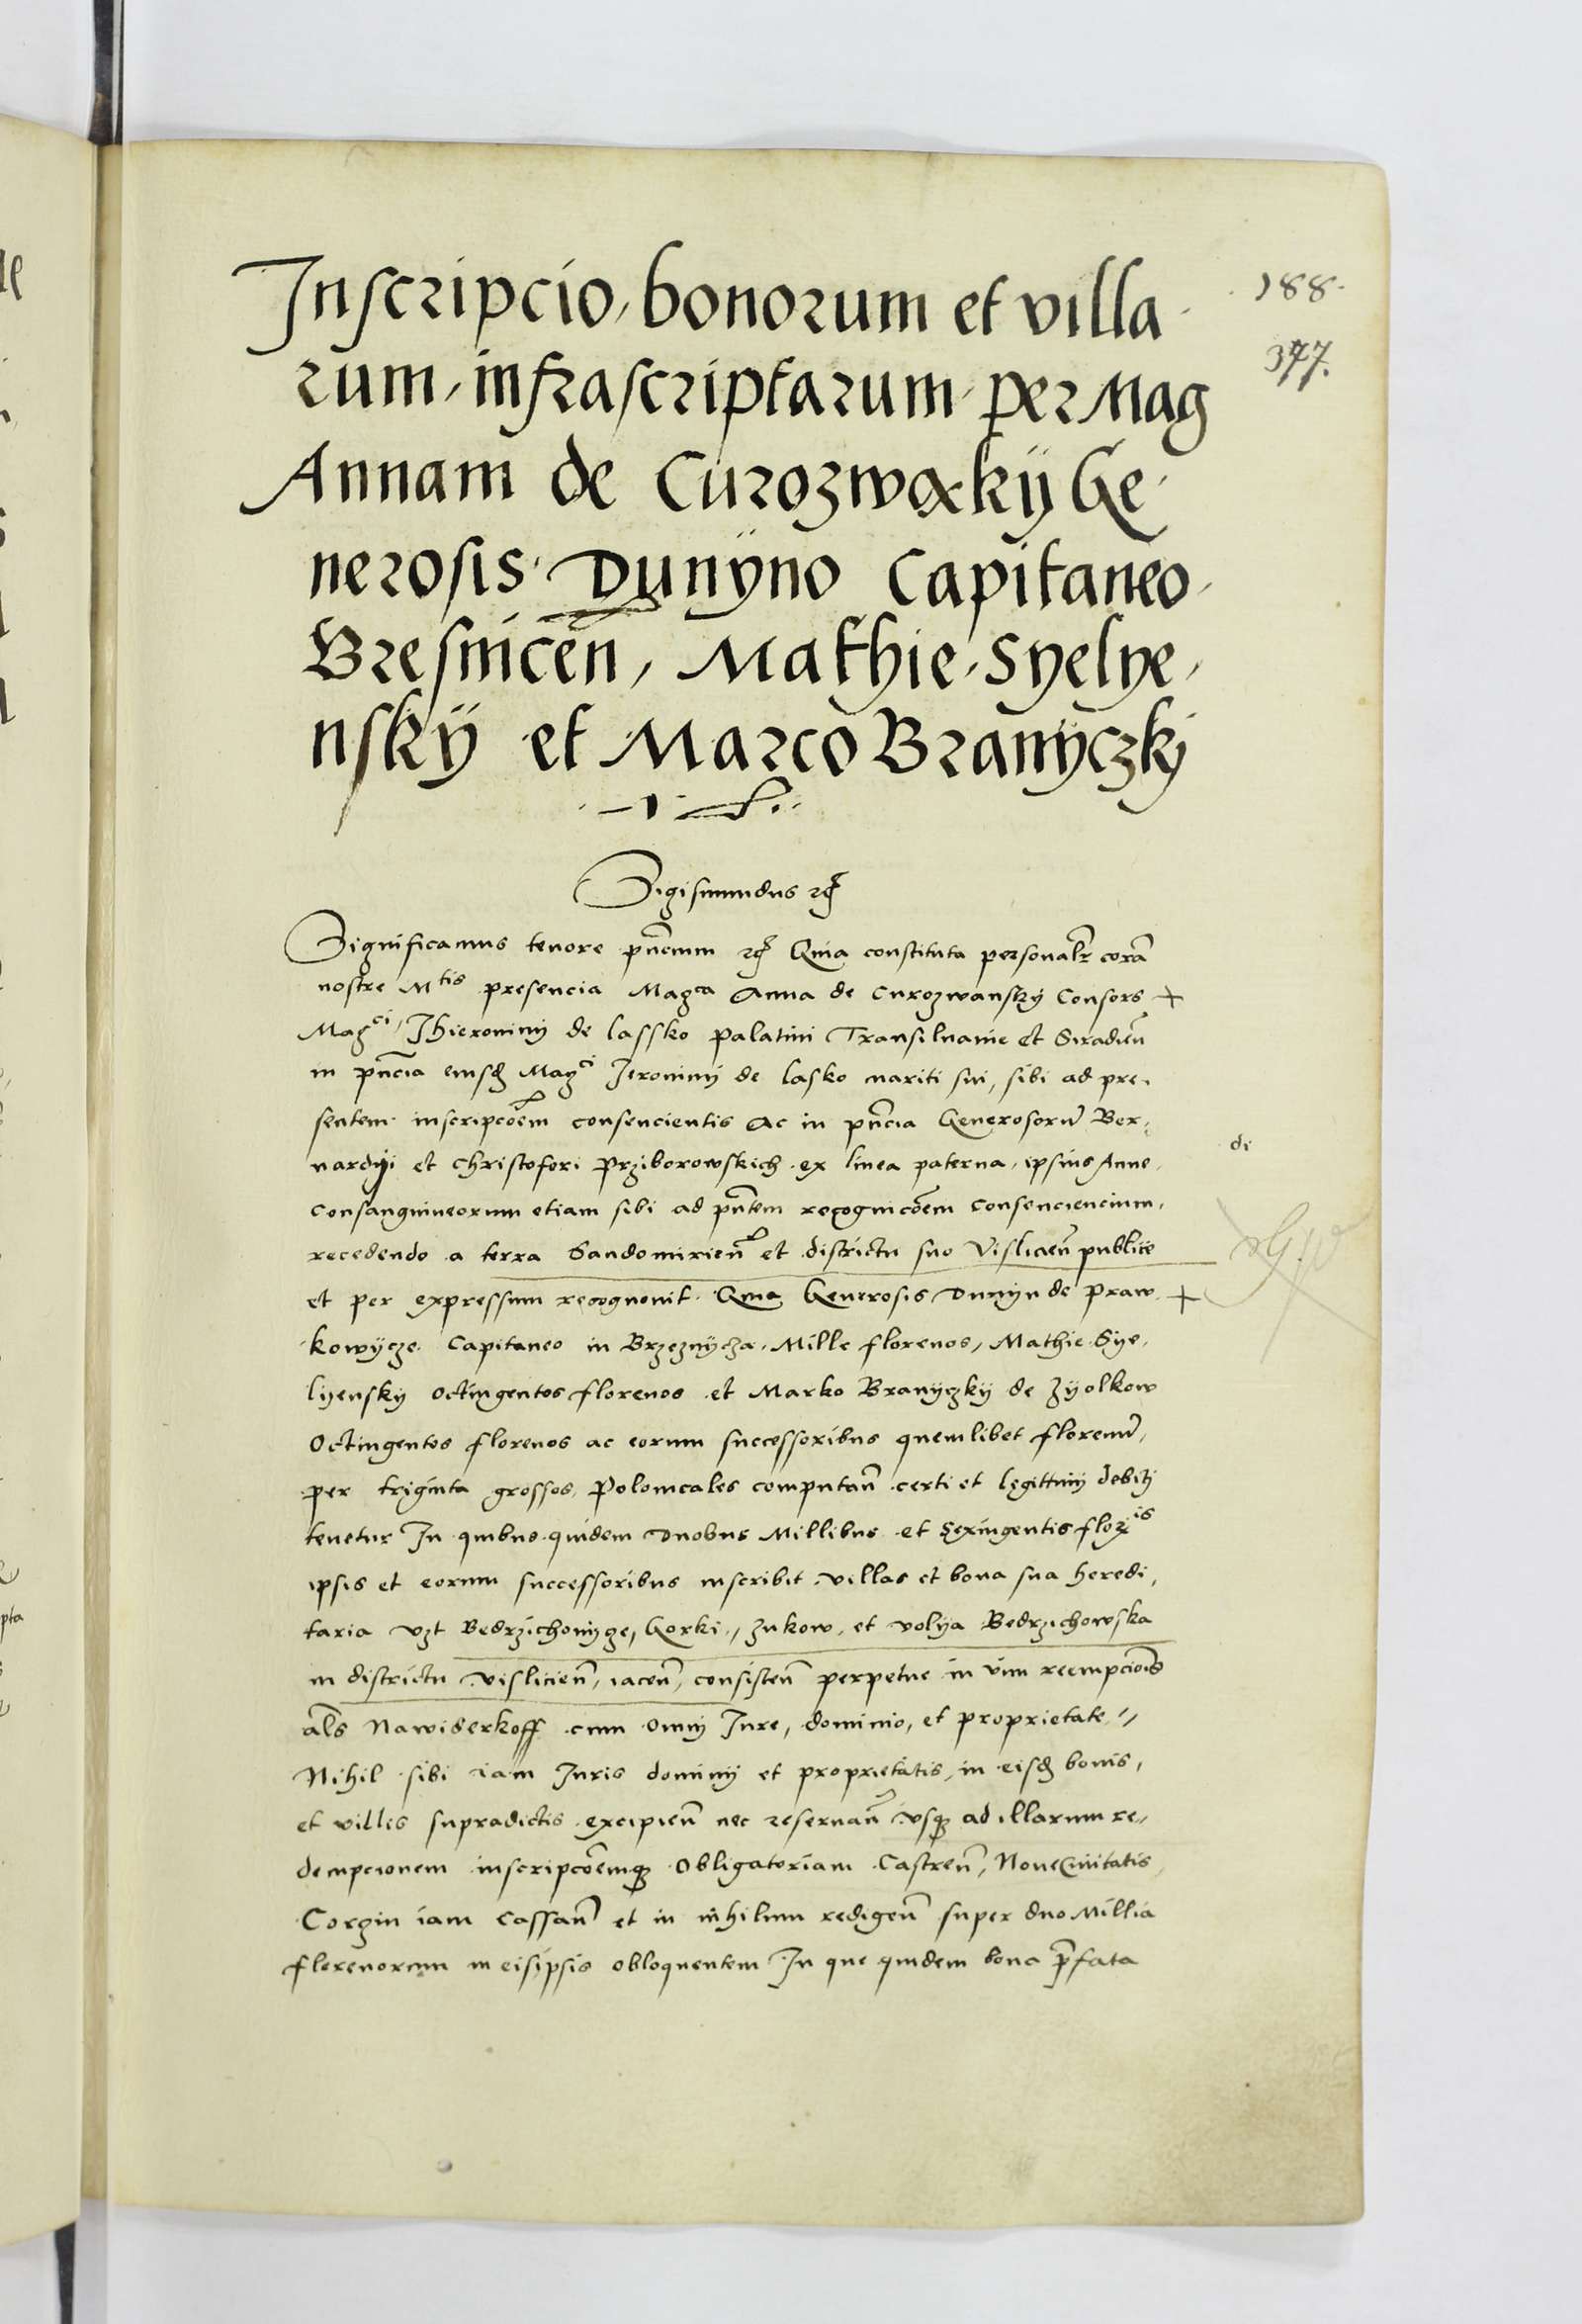 188.
377.
Inscripcio, bonorum et villa
rum, infrascriptarum, per Mag
Annam de Curozwąky Ge
nerosis Dunÿno Capitaneo
Bresnicen̄, Mathie Syelye,
nskÿ et Marco Branyczkj
Sigismundus rex
Significamus tenore pñcium rc̃ Quia constituta personalr̃ corã
nostre Mtis presencia Magca Anna de Curozwansky Consors +
Magci, Jhieronimj de lassko palatini Transiluanie et Siradien̄
in pñcia eiusd̃ Magci Jeronimj de lasko mariti sui, sibi ad pre,
sentem inscripcõem consencientis Ac in pñcia Generosorũ Ber,
nardÿi et Christofori Prziborowskich ex linea paterna, ipsius Anne,
di
consanguineorum etiam sibi ad pñtem recognicõem consenciencium,
recedendo a terra Sandomirien̄ et districtu suo Vislicien̄ publice
et per expressum recognouit Quia Generosis Dunÿn de praw +
kowÿcze Capitaneo in Brzeznÿcza, Mille florenos, Mathie Sye,
lyensky octingentos florenos et Marko Branyczkÿ de Zÿolkow
Octingentos florenos ac eorum successoribus quemlibet florenũ,
per triginta grossos, polonicales computañ certi et legittimj debitj
tenetur In quibus quidem duobus Millibus et sexingentis floris
ipsis et eorum successoribus inscribit villas et bona sua heredi,
taria vzt Bedrzichowÿge, Gorki,, zukow, et volya Bedrzichowska
in districtu vislicien̄, iacen̄, consisten̄ perpetue in vim reempcionis
als̃ Nawiderkoff cum omnj Jure, dominio, et proprietate,,
Nihil sibi iam Juris dominij et proprietatis, in eisd̃ bonis,
et villis supradictis excipien̄ nec reseruan̄ vsq̃ ad illarum re,,
dempcionem inscripcõemq̃ obligatoriam Castren̄, NoueCiuitatis
Corzin iam cassan̄ et in nihilum redigen̄ super duo Millia
florenorum in eisipsis obloquentem In que quidem bona p̃fata